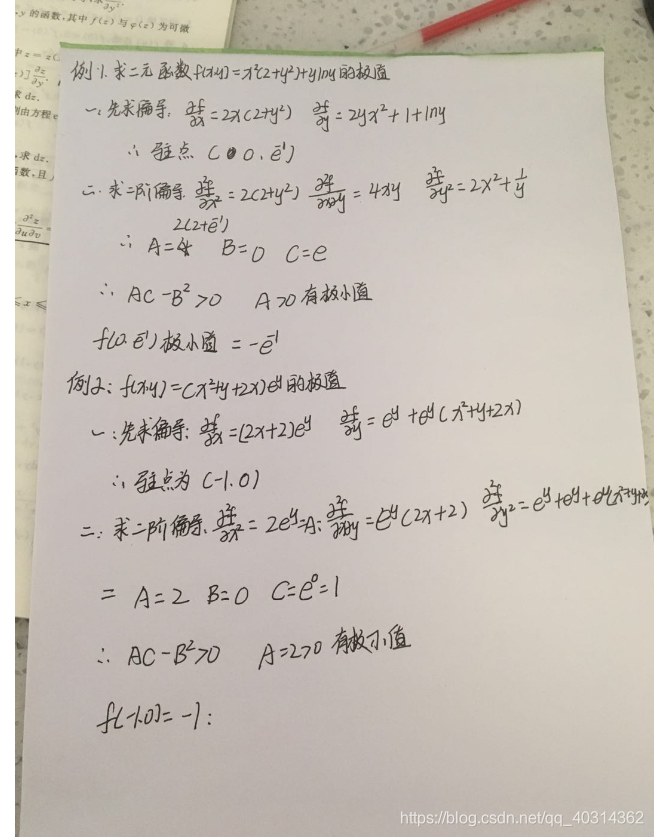 ,y 的函数,其中 f(z) 与 φ(z) 为可微
求 dz.
,求 dz.
例1. 求二元函数f(x,y)=x²(2+y²)+ylny的极值
一:先求偏导: ∂f/∂x=2x(2+y²) ∂f/∂y=2yx²+1+lny
∴ 驻点 (0,e⁻¹)
二. 求二阶偏导 ∂²f/∂x²=2(2+y²) ∂²f/∂x∂y=4xy ∂²f/∂y²=2x²+1/y
2(2+e⁻¹)
∴ A= B=0 C=e
∴ AC-B²>0 A>0 有极小值
f(0,e⁻¹)极小值=-e⁻¹
例2: f(x,y)=(x²+y+2x)eʸ的极值
一:先求偏导: ∂f/∂x=(2x+2)eʸ ∂f/∂y=eʸ+eʸ(x²+y+2x)
∴ 驻点为 (-1,0)
二: 求二阶偏导: ∂²f/∂x²=2eʸ=A: ∂²f/∂x∂y=eʸ(2x+2) ∂²f/∂y²=eʸ+eʸ+eʸ(x²+y+2x
= A=2 B=0 C=e⁰=1
∴ AC-B²>0 A=2>0 有极小值
f(-1,0)=-1:
https://blog.csdn.net/qq_40314362